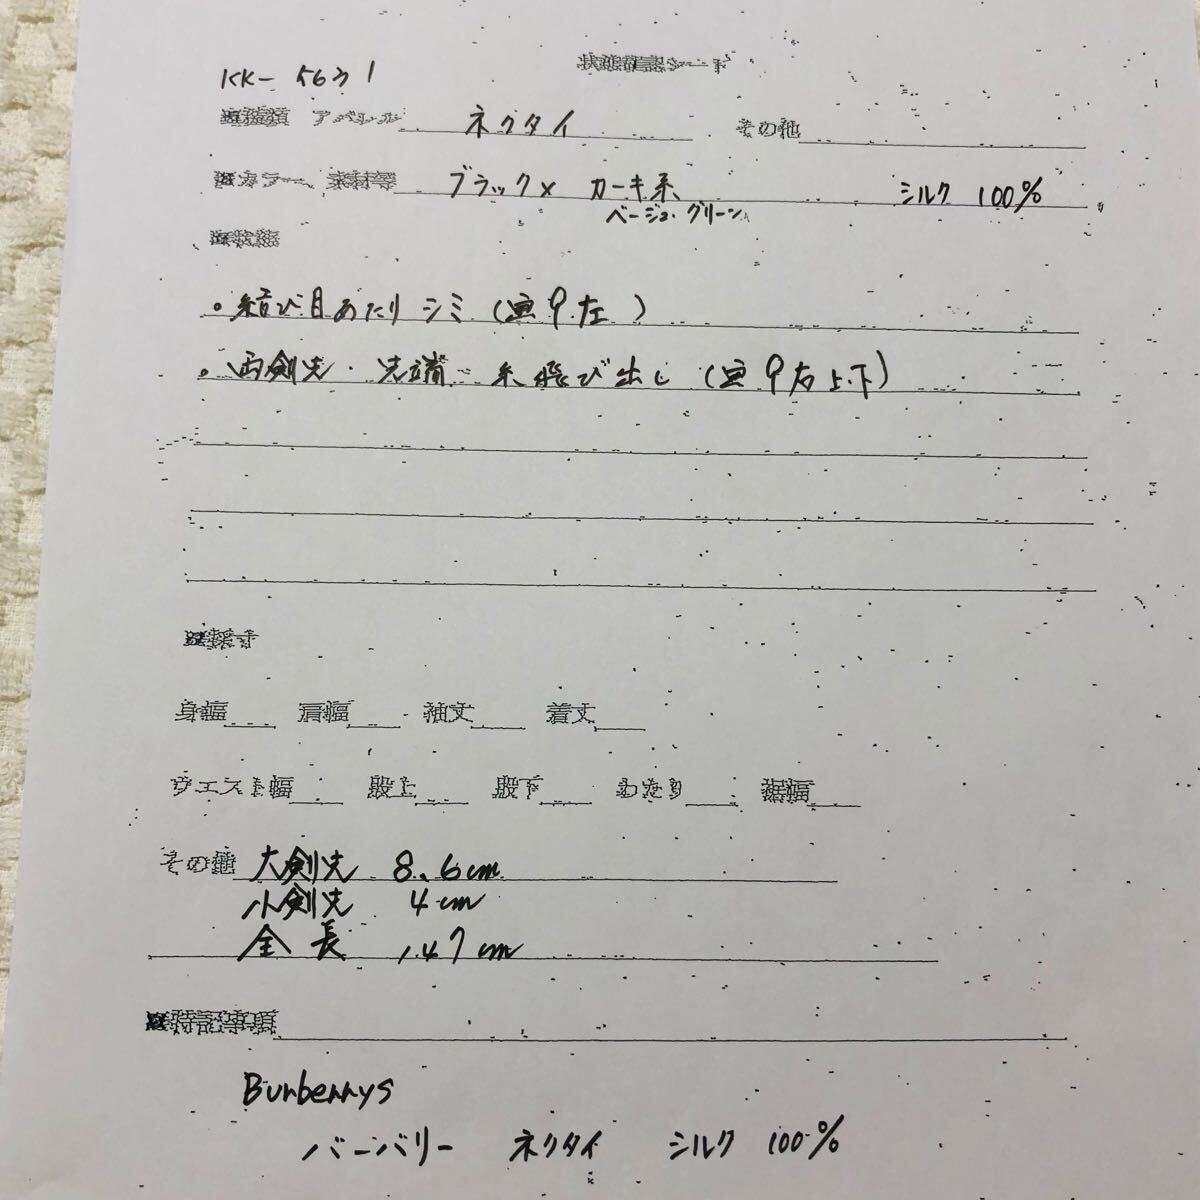 状態確認シート
KK- 5631
※種類 アパレル ネクタイ その他
※カラー、素材等 ブラック× カーキ系 シルク 100%
ベージュ・グリーン
※状態
。結び目あたり シミ (画9左)
。両剣先・先端 糸飛び出し (画9右上下)
※採寸
身幅 肩幅 袖丈 着丈
ウエスト幅 股上 股下 わたり 裾幅
その他 大剣先 8.6cm
小剣先 4cm
全長 147cm
※特記事項
Burberrys
バーバリー ネクタイ シルク 100%